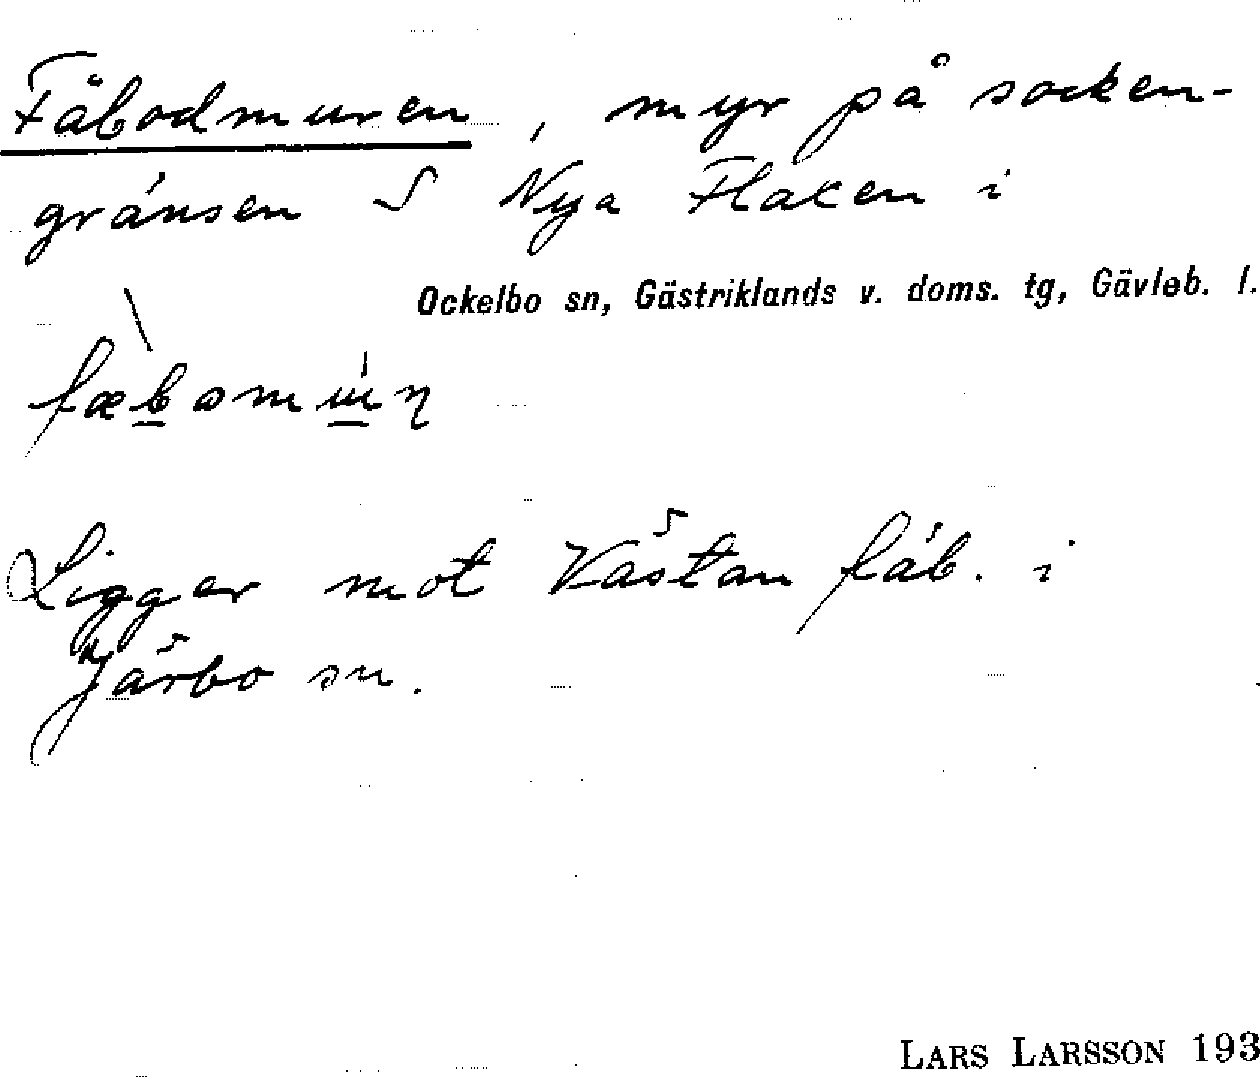 Fäbodmuren, myr på socken-
gränsen S Nya Flaken i
Ockelbo sn, Gästriklands v. doms. tg, Gävleb. l.
Ligger mot Västan fäb. i
Järbo sn.
LARS LARSSON 193